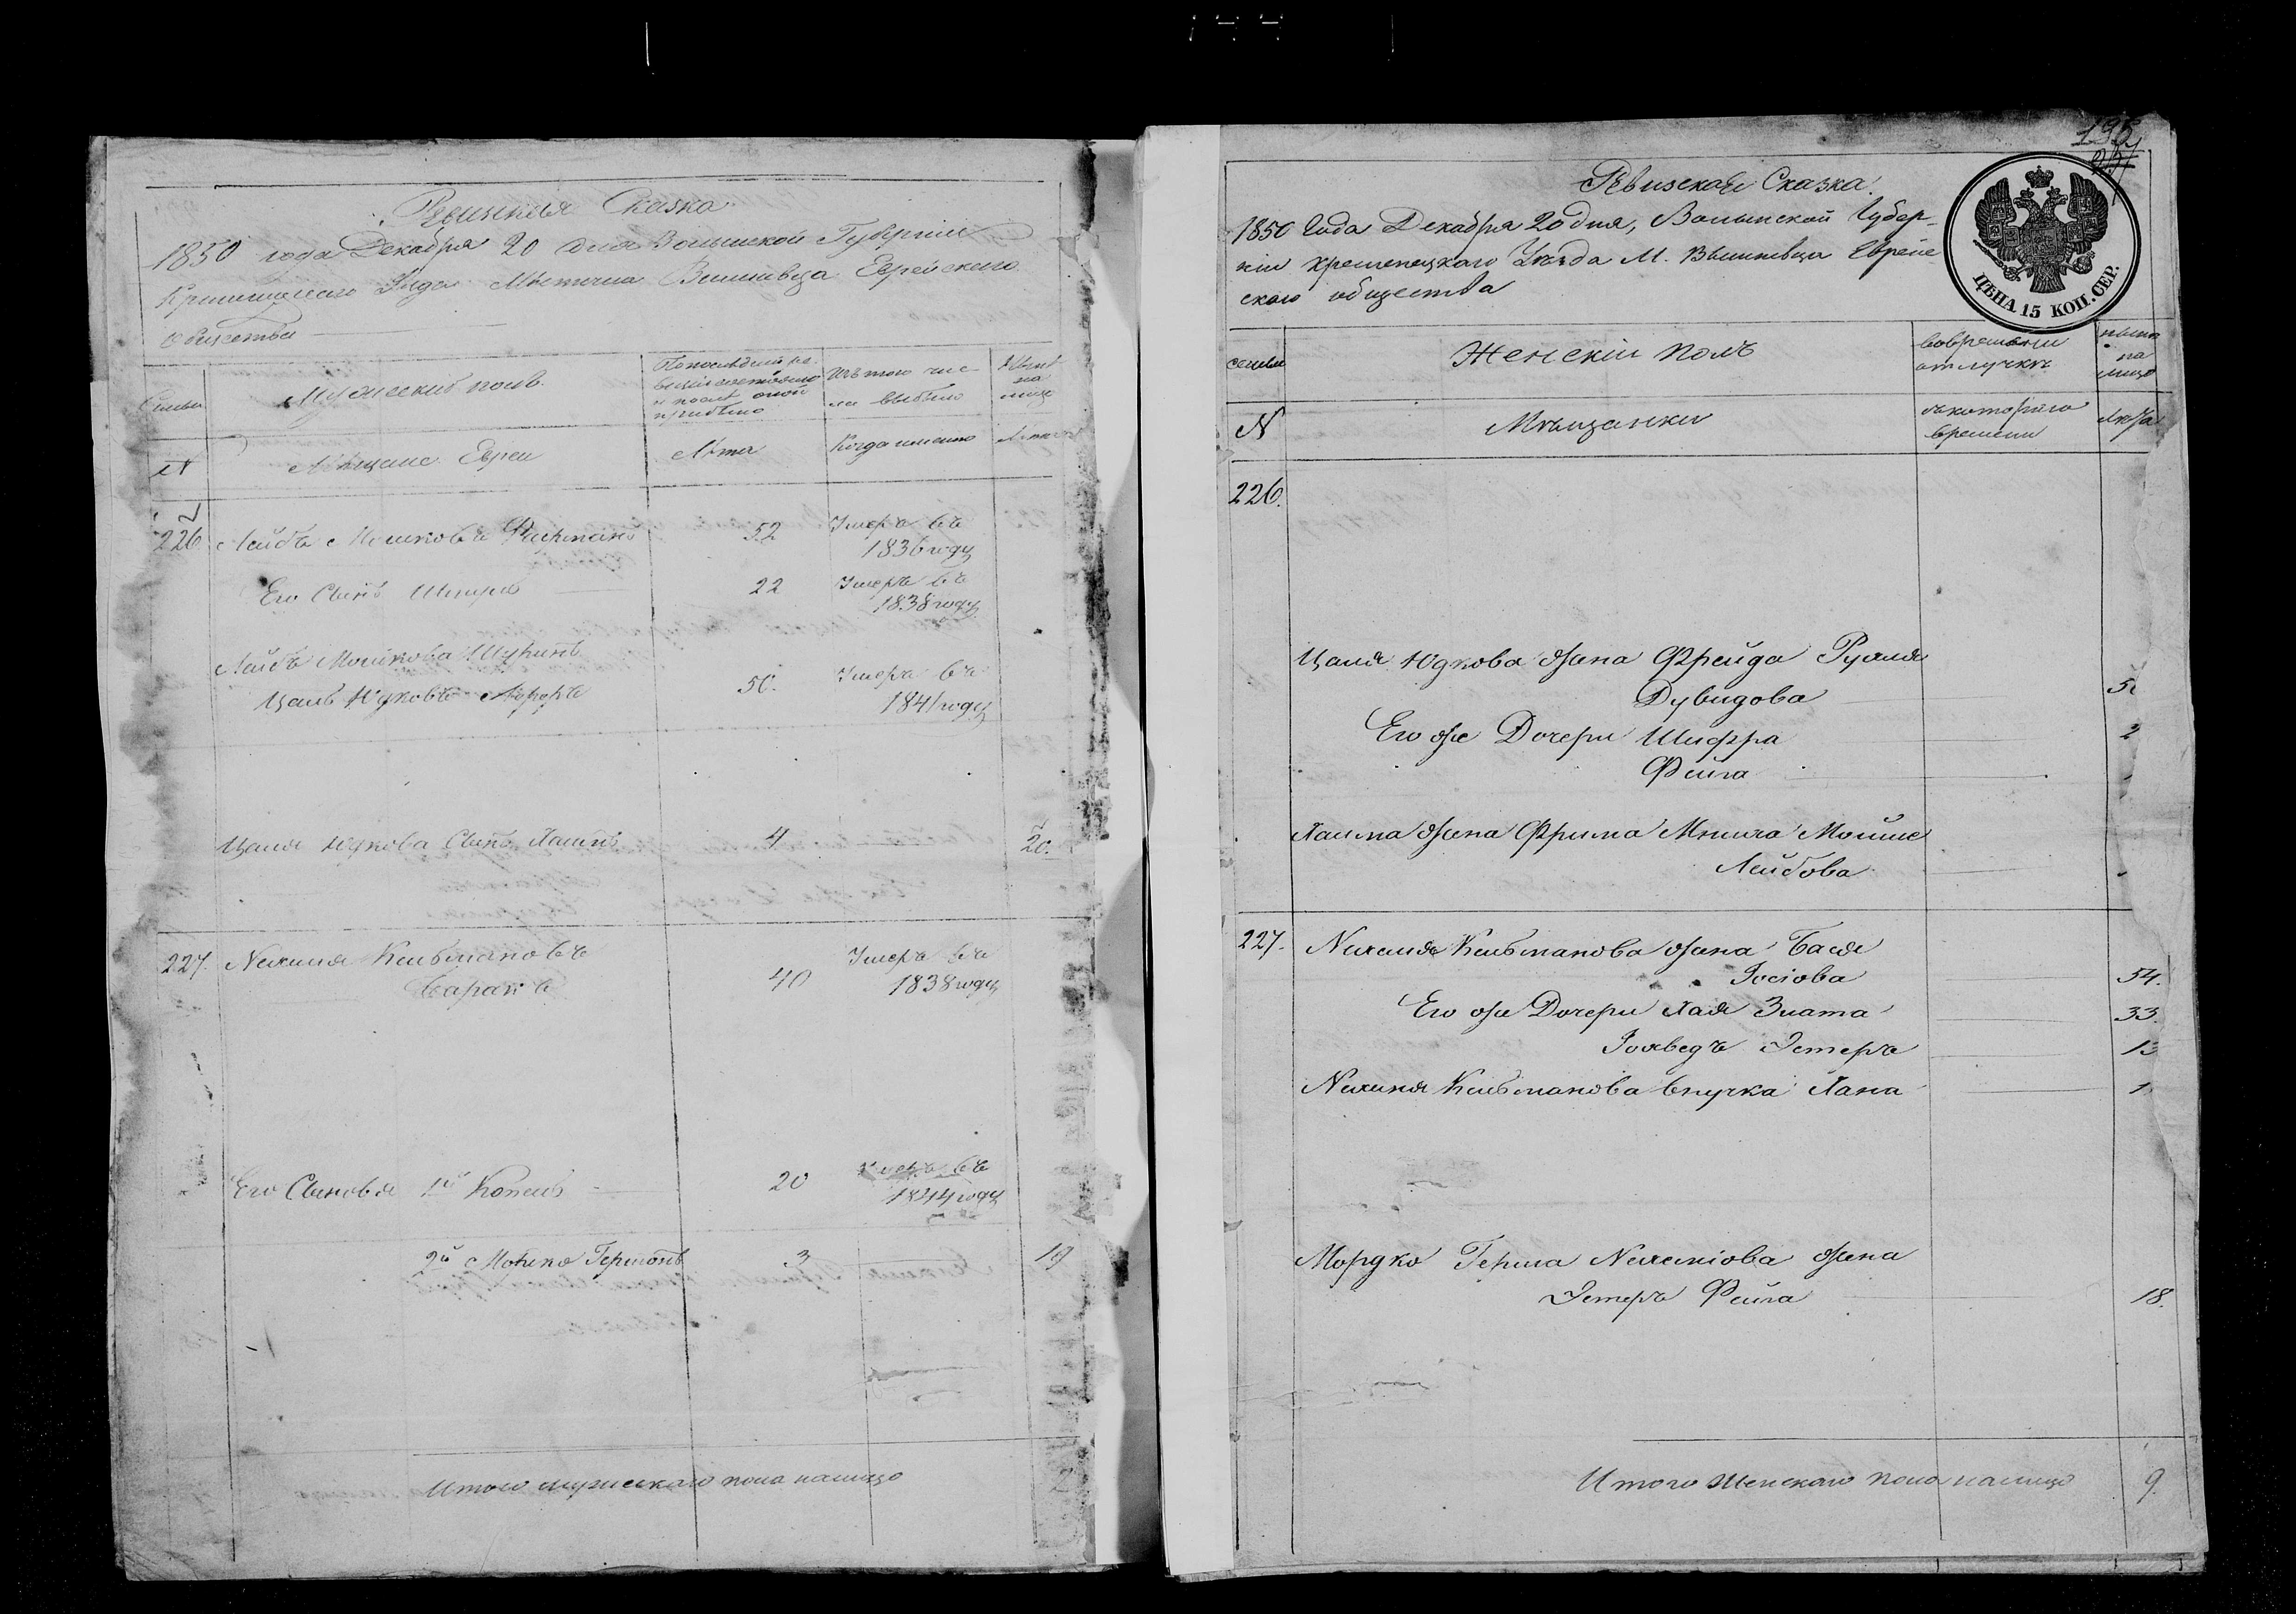 Ревизская Сказка
1850 года Декабря 20 дня Волынской Губернiи
Кременецкаго Уезда Местечка Вишневца Еврейского
общества
Семьи
Мужеский полъ
По последней ре-
визiи состояло
и после оной
прибыло
Изъ того чис-
ла выбыло
Ныне
на
лицо
№
Мещане Евреи
Лета
Когда именно
Лета
226
Лейбъ Мошковъ
52
Умеръ въ
1836 году
Его Сынъ
22
Умеръ въ
1838 году
Лейбъ Мошкова
Цаль Юдковъ
50.
Умеръ въ
1841 году
Цаля Юдкова Сынъ Хаимъ
4
20.
227.
Нехемя Кельмановъ
40
Умеръ въ
1838 году
Его Сыновья 1й Копель
20
Умеръ въ
1844 году
2й Мошко Гершонъ
3
19
Итого мужескаго пола налицо
135
Ревизская Сказка
1850 Года Декабря 20 дня, Волынской Губер-
нiи Кременецкаго Уезда М. Вишневца Еврей-
скаго общества
ЦѢНА 15 КОП. СЕР.
семьи
Женскiй полъ
Вовременни
отлучки
ныне
на
лицо
N
Мещанки
съкотораго
времени
Лета
226.
Цаля Юдкова жена Фрейда Рухля
Дувидова
Его же Дочери Шифра
Фейга
Хаима жена Фрима Мнича Мойше
Лейбова
227.
Нехемя Кельманова жена Бася
Iосiова
54.
Его же Дочери Хая Злата
33.
Iохведъ Эстеръ
Нехемя Кельманова внучка Хана
Мордко Герша Нехемiова жена
Эстеръ Фейга
18.
Итого Женскаго пола налицо
9.